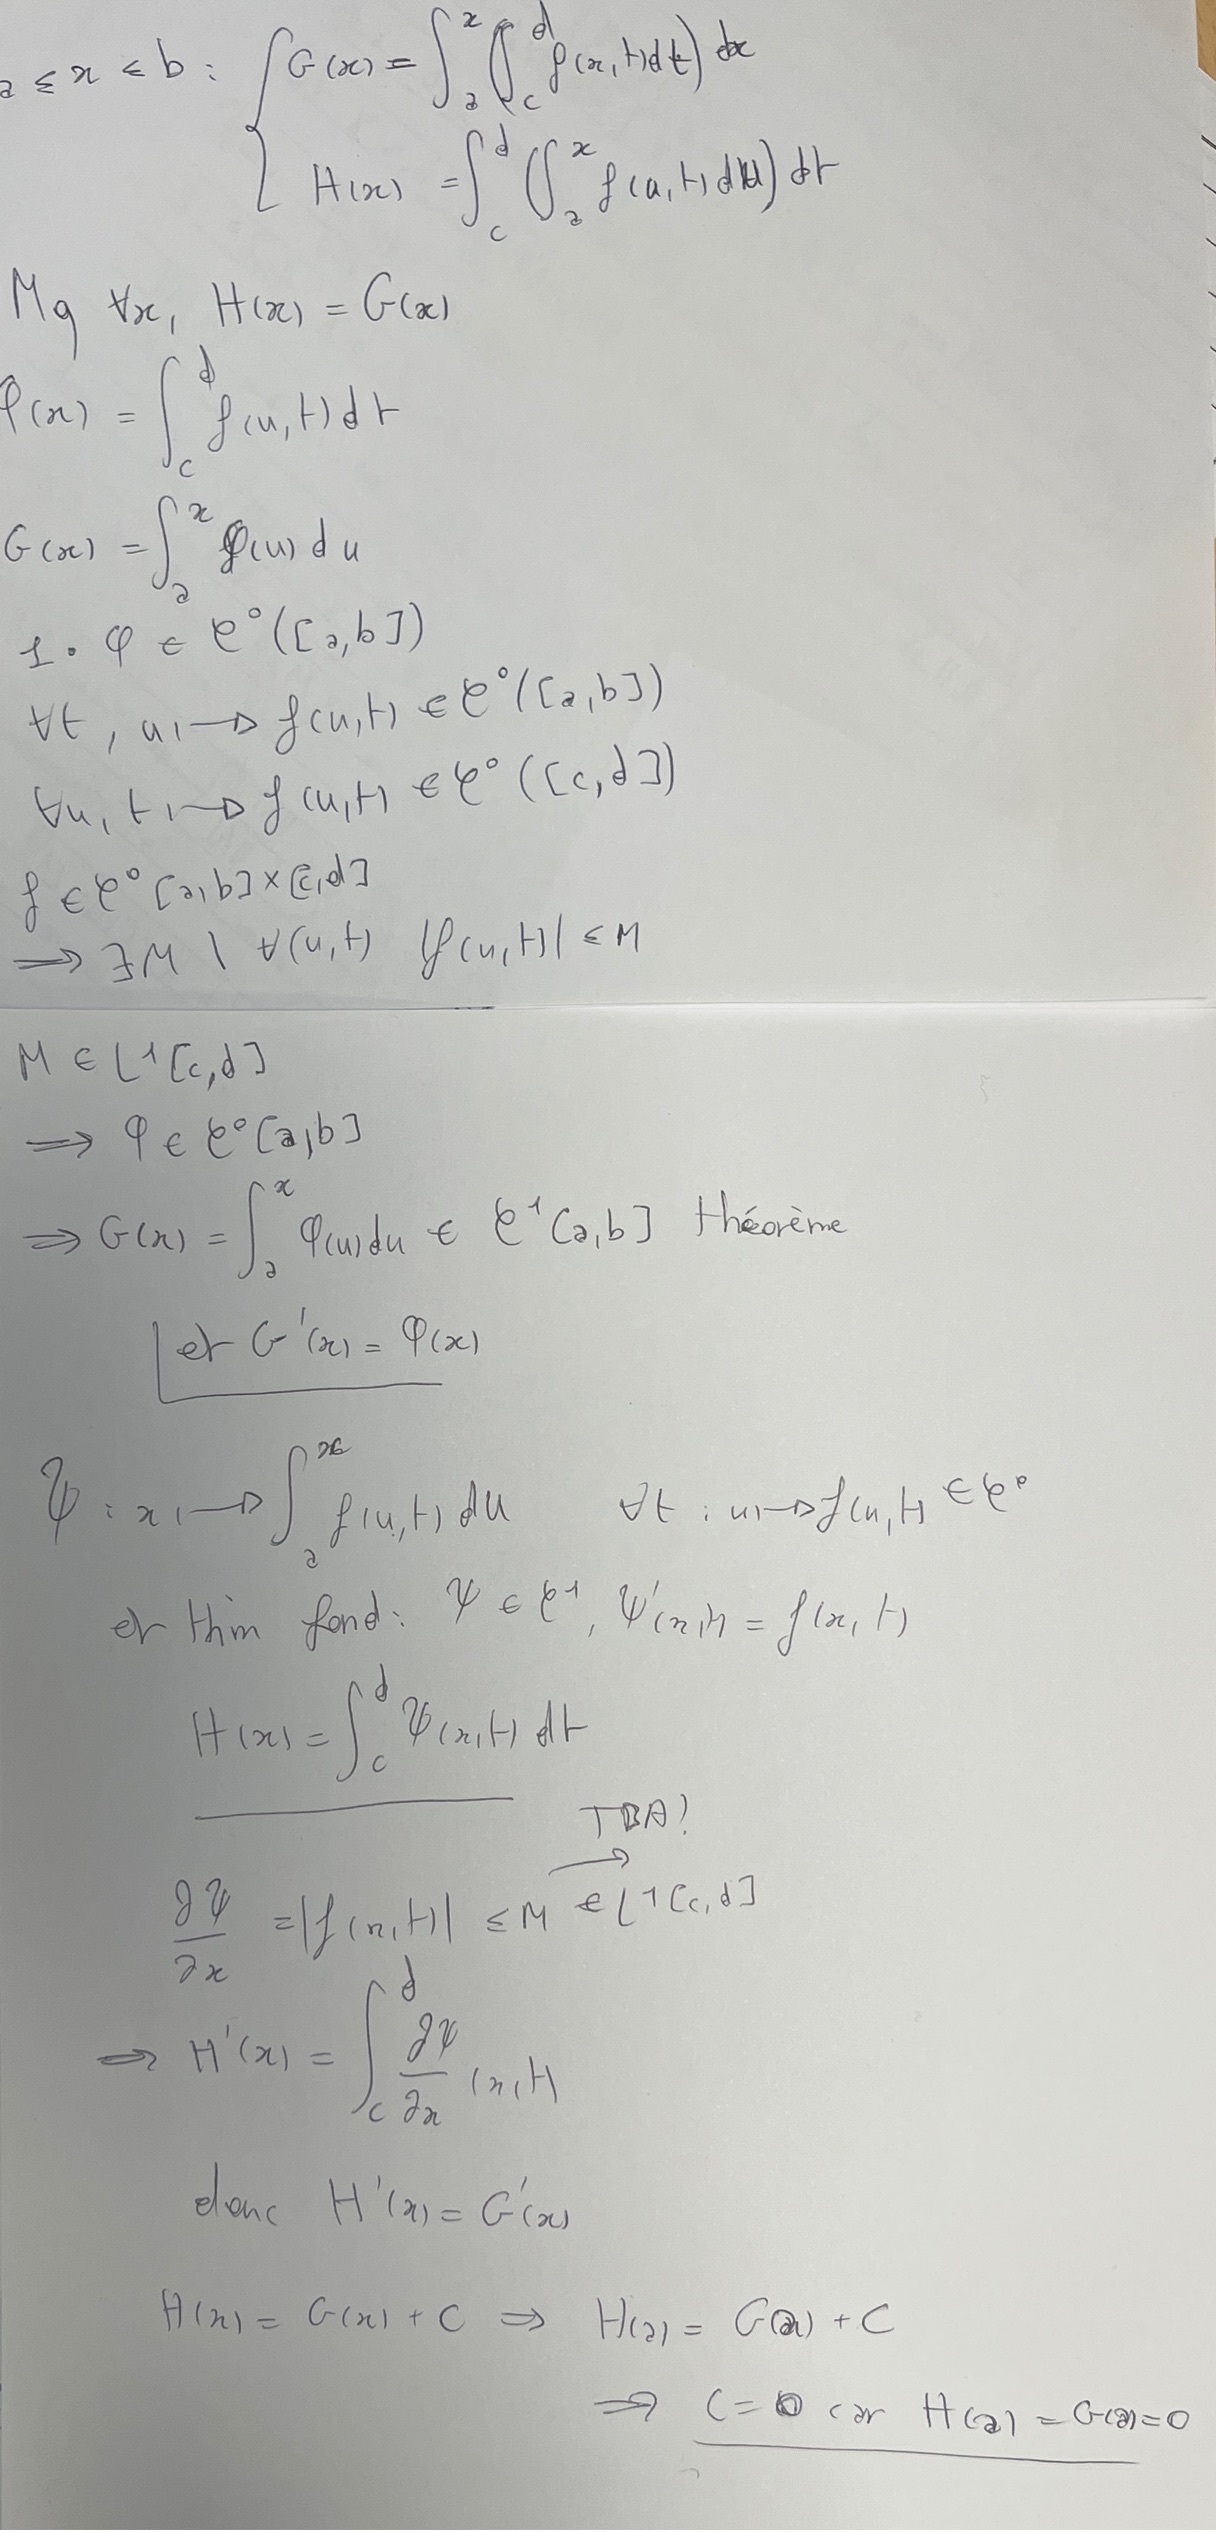 a ≤ x ≤ b : { G(x) = ∫_a^x (∫_c^d f(x,t)dt) dx
H(x) = ∫_c^d (∫_a^x f(u,t)du) dt
Mq ∀x, H(x) = G(x)
φ(x) = ∫_c^d f(u,t) dt
G(x) = ∫_a^x φ(u) du
1. φ ∈ C°([a,b])
∀t, u ↦ f(u,t) ∈ C°([a,b])
∀u, t ↦ f(u,t) ∈ C°([c,d])
f ∈ C° [a,b]×[c,d]
⇒ ∃M | ∀(u,t) |f(u,t)| ≤ M
M ∈ L¹[c,d]
⇒ φ ∈ C°[a,b]
⇒ G(x) = ∫_a^x φ(u)du ∈ C¹[a,b] théorème
et G'(x) = φ(x)
Ψ : x ↦ ∫_a^x f(u,t) du ∀t : u ↦ f(u,t) ∈ C°
et thm fond : Ψ ∈ C¹, Ψ'(x,t) = f(x,t)
H(x) = ∫_c^d Ψ(x,t) dt
TBA!
∂Ψ/∂x = |f(x,t)| ≤ M ∈ L¹[c,d]
⇒ H'(x) = ∫_c^d ∂Ψ/∂x (x,t)
donc H'(x) = G'(x)
H(x) = G(x) + C ⇒ H(a) = G(a) + C
⇒ C = 0 car H(a) = G(a) = 0